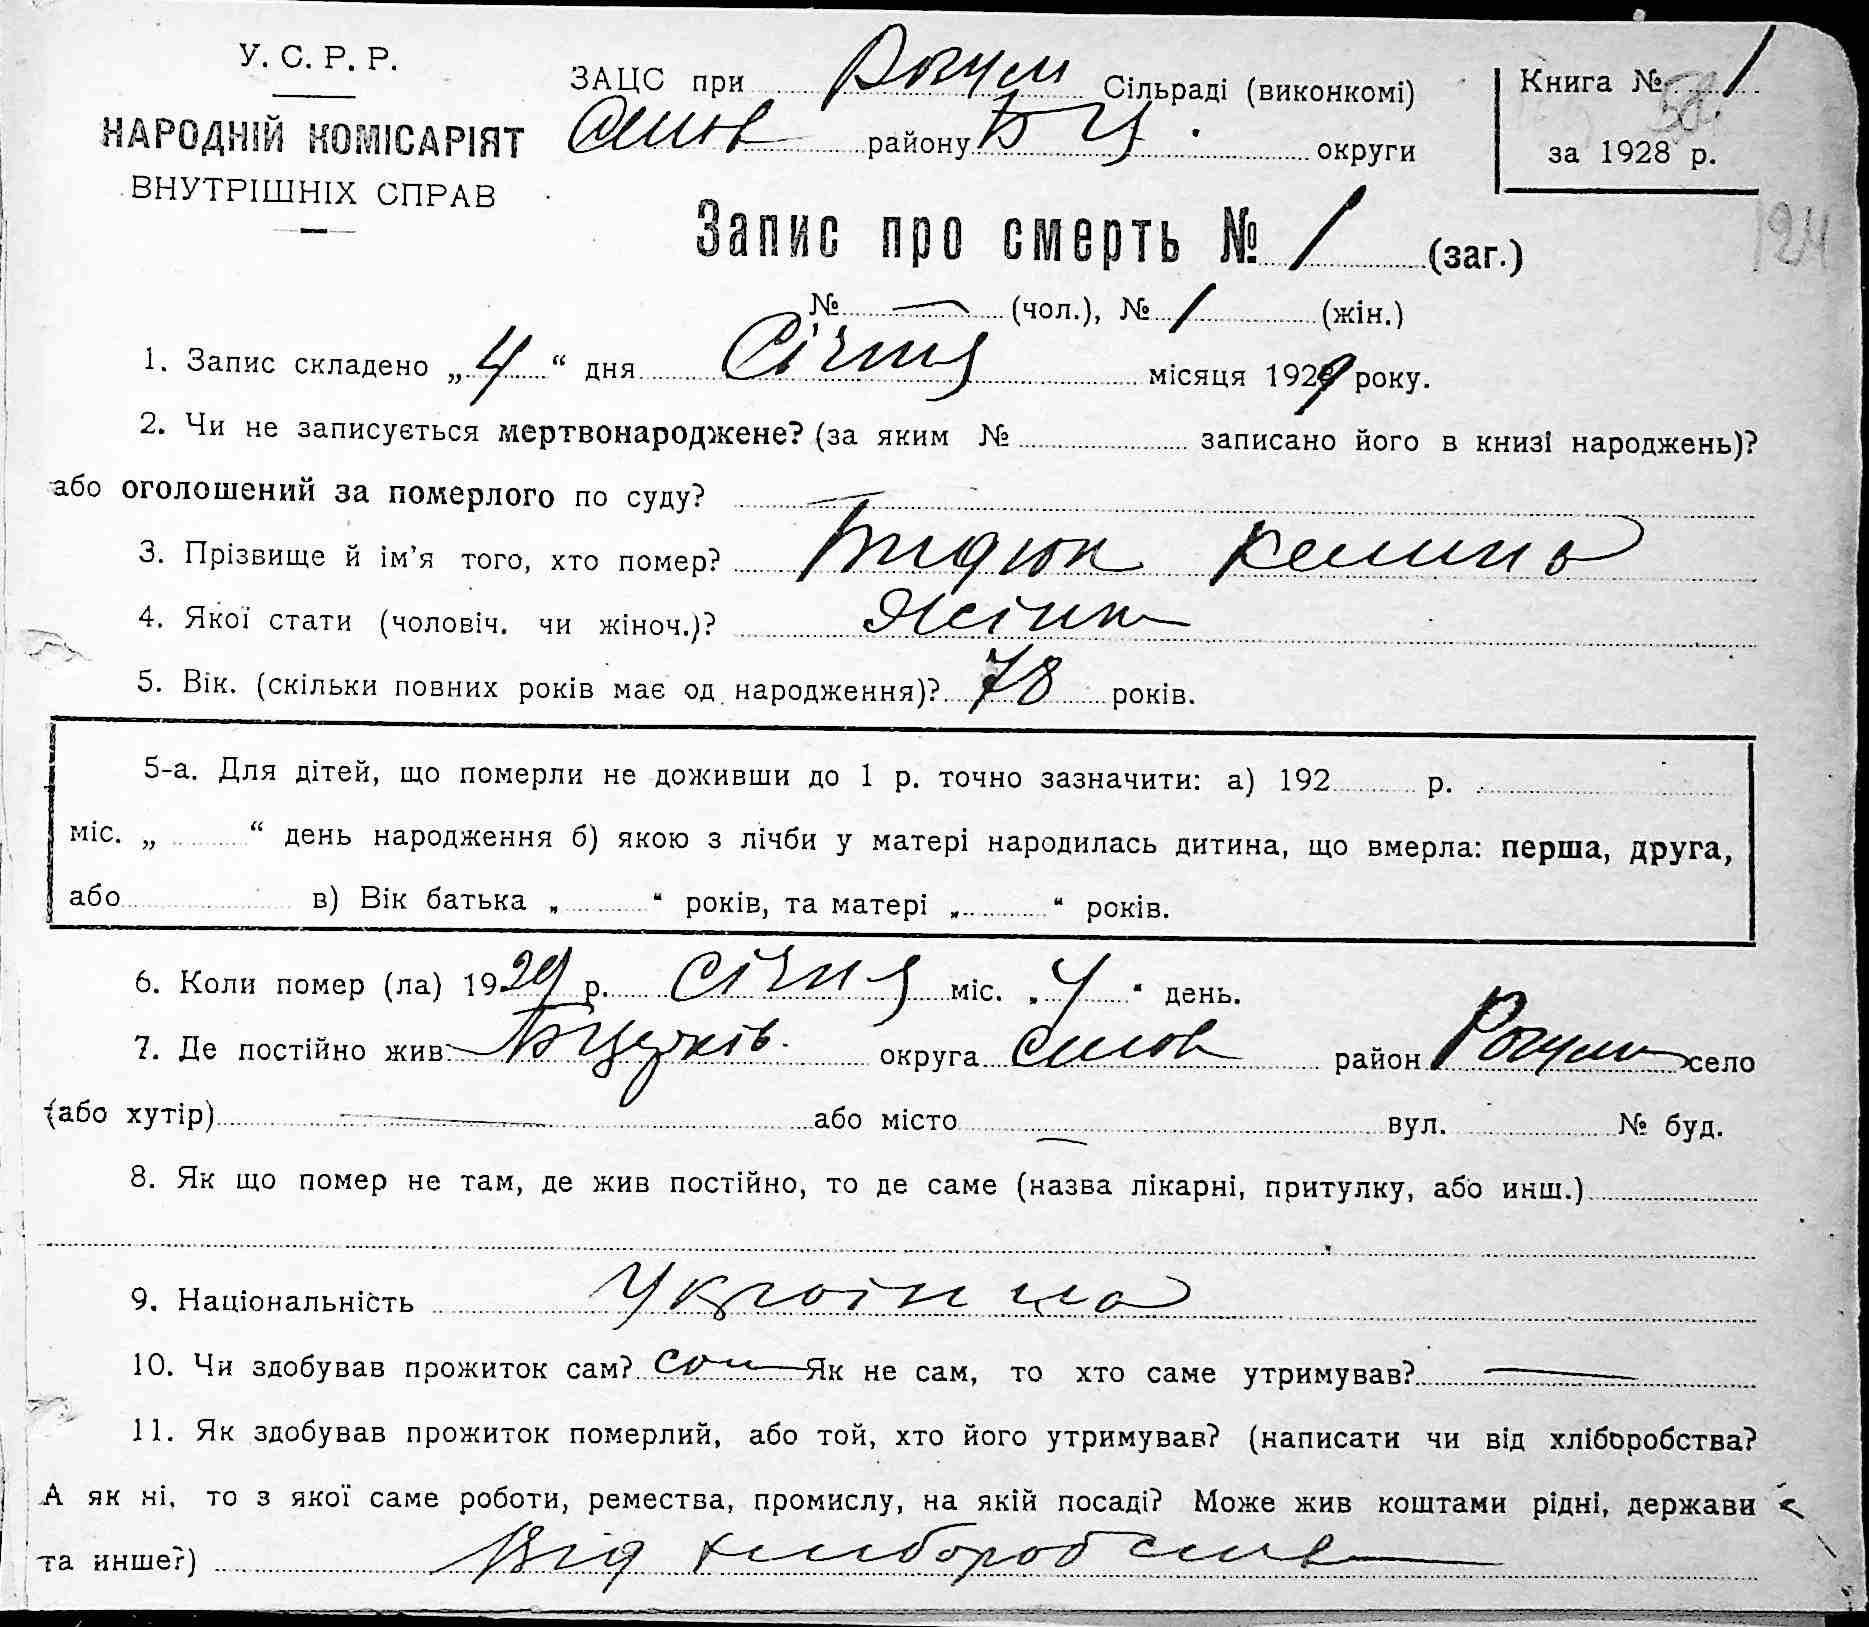 У. С. Р. Р.
НАРОДНІЙ КОМІСАРІЯТ
ВНУТРІШНІХ СПРАВ
ЗАЦС при Рогул Сільраді (виконкомі)
району БЦ. округи
Книга № 1
за 1928 р.
124
Запис про смерть № 1 (заг.)
№ — (чол.), № 1 (жін.)
1. Запис складено „4“ дня Січня місяця 1929 року.
2. Чи не записується мертвонароджене? (за яким № записано його в книзі народжень)?
або оголошений за померлого по суду? —
3. Прізвище й ім'я того, хто помер? Бидюк Келина
4. Якої стати (чоловіч. чи жіноч.)? Жіноч
5. Вік. (скільки повних років має од народження)? 78 років.
5-а. Для дітей, що померли не доживши до 1 р. точно зазначити: а) 192 р.
міс. „ “ день народження б) якою з лічби у матері народилась дитина, що вмерла: перша, друга,
або в) Вік батька „ “ років, та матері „ “ років.
6. Коли помер (ла) 1929 р. Січня міс. „4“ день.
7. Де постійно жив Бцерків. округа район Рогули село
(або хутір) — або місто — вул. № буд.
8. Як що помер не там, де жив постійно, то де саме (назва лікарні, притулку, або инш.)
9. Національність Українка
10. Чи здобував прожиток сам? сам Як не сам, то хто саме утримував? —
11. Як здобував прожиток померлий, або той, хто його утримував? (написати чи від хліборобства?
А як ні, то з якої саме роботи, ремества, промислу, на якій посаді? Може жив коштами рідні, держави
та инше?) Від хліборобства